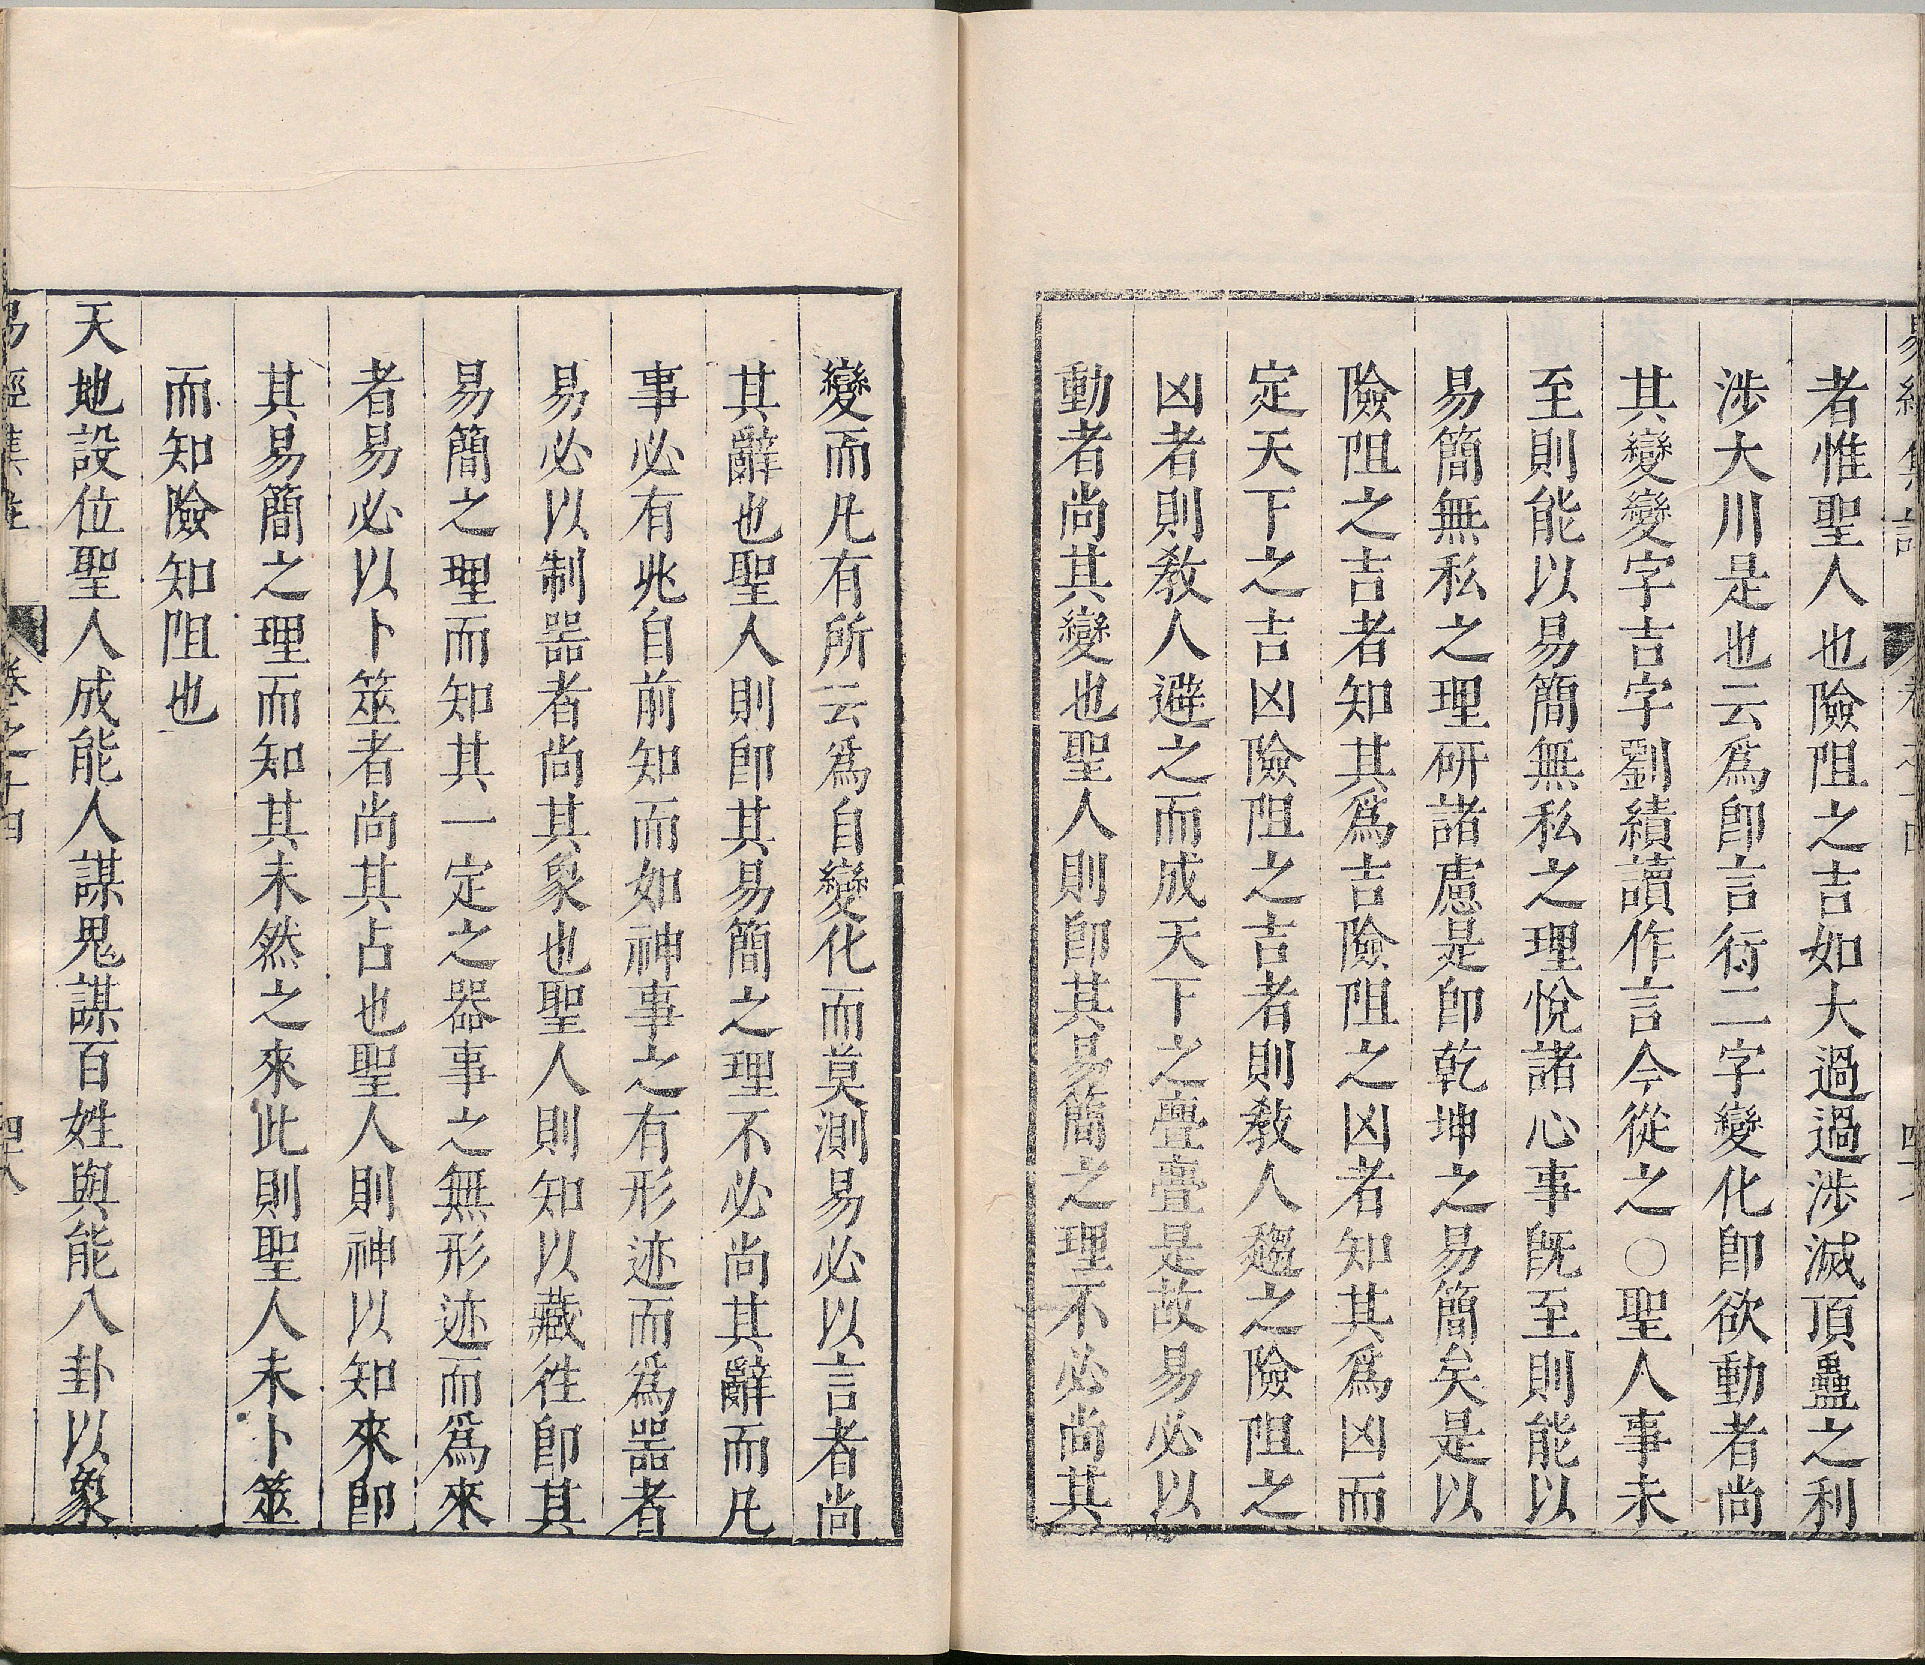 者惟聖人也險阻之吉如大過過涉滅頂蠱之利
涉大川是也云爲卽言行二字變化卽欲動者尚
其變變字吉字劉績讀作言今從之○聖人事未
至則能以易簡無私之理悅諸心事旣至則能以
易簡無私之理硏諸慮是卽乾坤之易簡矣是以
險阻之吉者知其爲吉險阻之凶者知其爲凶而
定天下之吉凶險阻之吉者則敎人趨之險阻之
凶者則敎人避之而成天下之亹亹是故易必以
動者尚其變也聖人則卽其易簡之理不必尚其
變而凡有所云爲自變化而莫測易必以言者尚
其辭也聖人則卽其易簡之理不必尚其辭而凡
事必有兆自前知而如神事之有形迹而爲器者
易必以制器者尚其象也聖人則知以藏徃卽其
易簡之理而知其一定之器事之無形迹而爲來
者易必以卜筮者尚其占也聖人則神以知來卽
其易簡之理而知其未然之來此則聖人未卜筮
而知險知阻也
天地設位聖人成能人謀鬼謀百姓與能八卦以象
易經集註 卷之十四